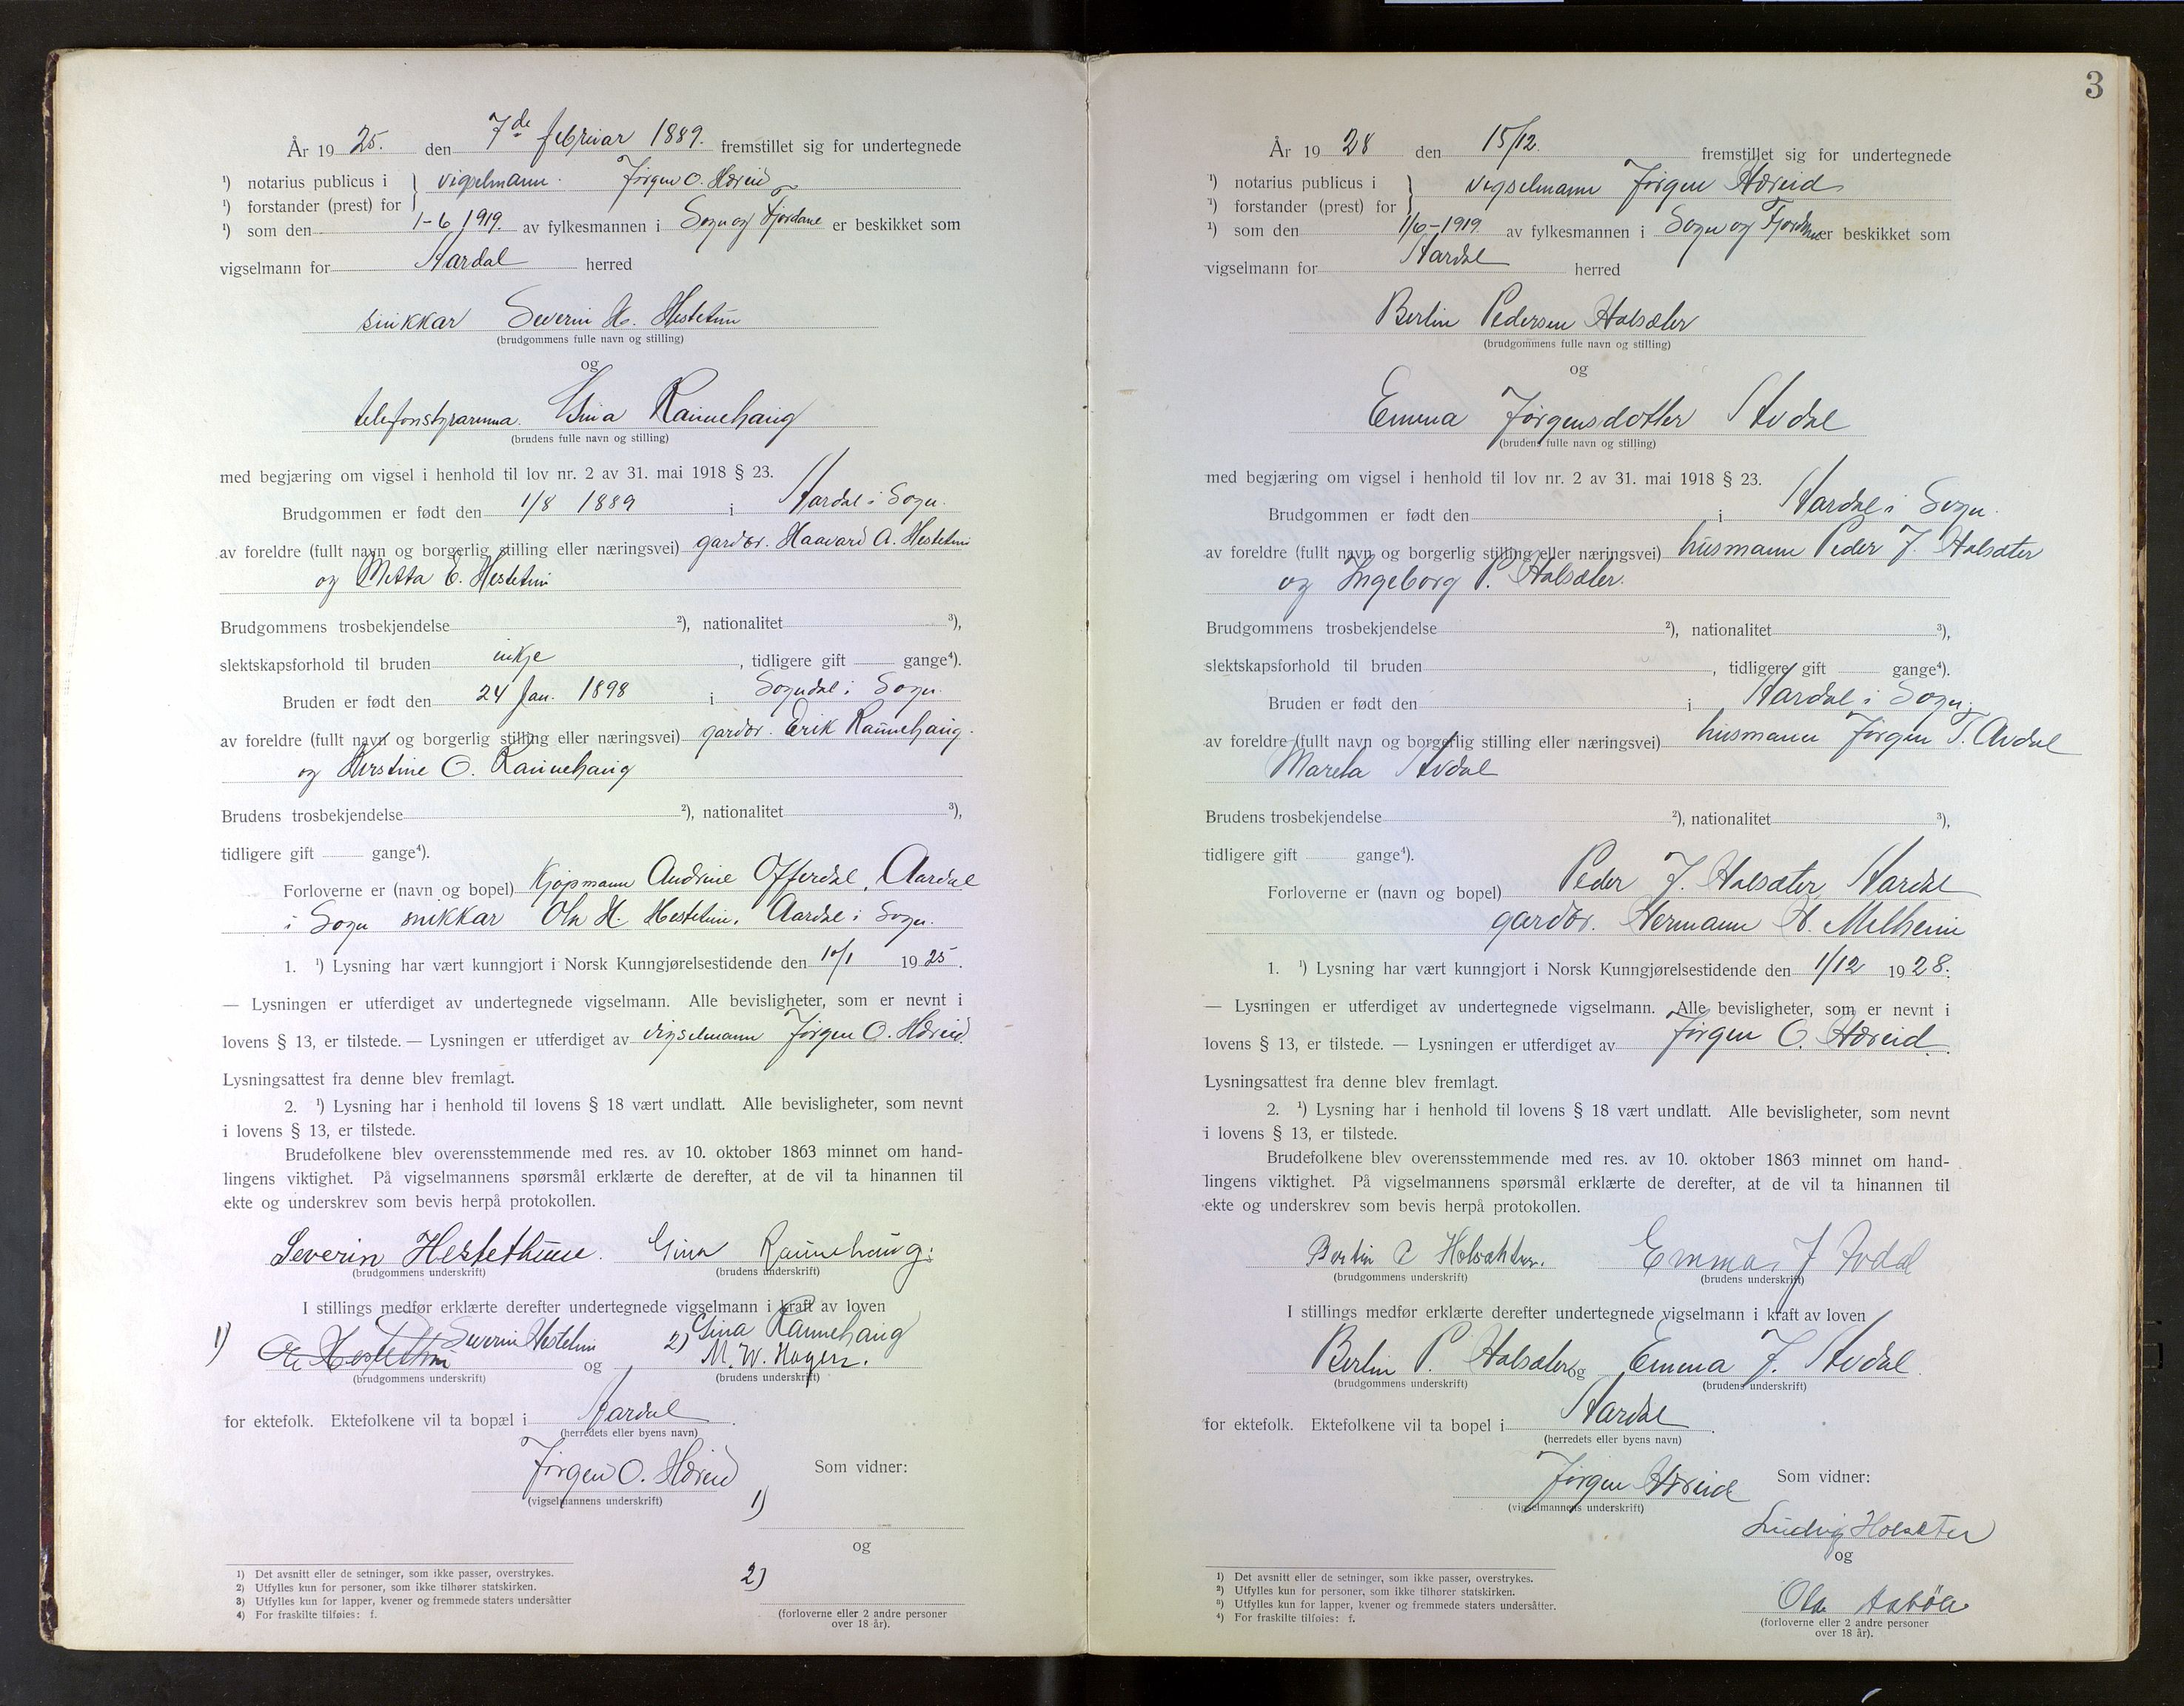 År 19 25. den 7de februar 1889. fremstillet sig for undertegnede
¹) notarius publicus i } vigselmann. Jørgen O. Hæreid
¹) forstander (prest) for
¹) som den 1-6 1919. av fylkesmannen i Sogn og Fjordane er beskikket som
vigselmann for Aardal herred
snikkar Severin H. Hestetun
(brudgommens fulle navn og stilling)
og
telefonstyrarinna. Gina Raunehaug
(brudens fulle navn og stilling)
med begjæring om vigsel i henhold til lov nr. 2 av 31. mai 1918 § 23.
Brudgommen er født den 1/8 1889 i Aardal i Sogn.
av foreldre (fullt navn og borgerlig stilling eller næringsvei) gardbr. Haavard A. Hestetun
og Metta E. Hestetun
Brudgommens trosbekjendelse ²), nationalitet ³),
slektskapsforhold til bruden inkje , tidligere gift gange⁴).
Bruden er født den 24 Jan. 1898 i Sogndal i Sogn.
av foreldre (fullt navn og borgerlig stilling eller næringsvei) gardbr. Erik Raunehaug.
og Kirstine O. Raunehaug
Brudens trosbekjendelse ²), nationalitet ³),
tidligere gift gange⁴).
Forloverne er (navn og bopel) Kjøpmann Andrine Offerdal, Aardal
i Sogn snikkar Ola H. Hestetun, Aardal i Sogn.
1. ¹) Lysning har vært kunngjort i Norsk Kunngjørelsestidende den 10/1 19 25.
— Lysningen er utferdiget av undertegnede vigselmann. Alle bevisligheter, som er nevnt i
lovens § 13, er tilstede. — Lysningen er utferdiget av vigselmann Jørgen O. Hæreid.
Lysningsattest fra denne blev fremlagt.
2. ¹) Lysning har i henhold til lovens § 18 vært undlatt. Alle bevisligheter, som nevnt
i lovens § 13, er tilstede.
Brudefolkene blev overensstemmende med res. av 10. oktober 1863 minnet om hand-
lingens viktighet. På vigselmannens spørsmål erklærte de derefter, at de vil ta hinannen til
ekte og underskrev som bevis herpå protokollen.
Severin Hestethune. Gina Raunehaug.
(brudgommens underskrift) (brudens underskrift)
I stillings medfør erklærte derefter undertegnede vigselmann i kraft av loven
1) Severin Hestetun 2) Gina Raunehaug
Hestethun og M. W. Hagen.
(brudgommens underskrift) (brudens underskrift)
for ektefolk. Ektefolkene vil ta bopæl i Aardal .
(herredets eller byens navn)
Jørgen O. Hæreid Som vidner:
(vigselmannens underskrift) 1)
og
2)
(forloverne eller 2 andre personer
over 18 år).
1) Det avsnitt eller de setninger, som ikke passer, overstrykes.
2) Utfylles kun for personer, som ikke tilhører statskirken.
3) Utfylles kun for lapper, kvener og fremmede staters undersåtter
4) For fraskilte tilføies: f.
3
År 19 28 den 15/12. fremstillet sig for undertegnede
¹) notarius publicus i } vigselmann Jørgen Hæreid
¹) forstander (prest) for
¹) som den 1/6-1919 av fylkesmannen i Sogn og Fjordane er beskikket som
vigselmann for Aardal herred
Bertin Pedersen Holsæter
(brudgommens fulle navn og stilling)
og
Emma Jørgensdotter Avdal
(brudens fulle navn og stilling)
med begjæring om vigsel i henhold til lov nr. 2 av 31. mai 1918 § 23.
Brudgommen er født den i Aardal i Sogn.
av foreldre (fullt navn og borgerlig stilling eller næringsvei) husmann Peder J. Holsæter
og Ingeborg P. Holsæter.
Brudgommens trosbekjendelse ²), nationalitet ³),
slektskapsforhold til bruden , tidligere gift gange⁴).
Bruden er født den i Aardal i Sogn.
av foreldre (fullt navn og borgerlig stilling eller næringsvei) husmann Jørgen T. Avdal
Mareta Avdal
Brudens trosbekjendelse ²), nationalitet ³),
tidligere gift gange⁴).
Forloverne er (navn og bopel) Peder J. Holsæter, Aardal
gardbr. Hermann H. Melheim
1. ¹) Lysning har vært kunngjort i Norsk Kunngjørelsestidende den 1/12 19 28.
— Lysningen er utferdiget av undertegnede vigselmann. Alle bevisligheter, som er nevnt i
lovens § 13, er tilstede. — Lysningen er utferdiget av Jørgen O. Hæreid.
Lysningsattest fra denne blev fremlagt.
2. ¹) Lysning har i henhold til lovens § 18 vært undlatt. Alle bevisligheter, som nevnt
i lovens § 13, er tilstede.
Brudefolkene blev overensstemmende med res. av 10. oktober 1863 minnet om hand-
lingens viktighet. På vigselmannens spørsmål erklærte de derefter, at de vil ta hinannen til
ekte og underskrev som bevis herpå protokollen.
Bertin P Holsæter. Emma J Avdal
(brudgommens underskrift) (brudens underskrift)
I stillings medfør erklærte derefter undertegnede vigselmann i kraft av loven
Bertin P. Holsæter og Emma J. Avdal.
(brudgommens underskrift) (brudens underskrift)
for ektefolk. Ektefolkene vil ta bopel i Aardal .
(herredets eller byens navn)
Jørgen Hæreid Som vidner:
(vigselmannens underskrift)
Ludvig Holsæter
og
Ola
(forloverne eller 2 andre personer
over 18 år).
¹) Det avsnitt eller de setninger, som ikke passer, overstrykes.
²) Utfylles kun for personer, som ikke tilhører statskirken.
³) Utfylles kun for lapper, kvener og fremmede staters undersåtter.
⁴) For fraskilte tilføies: f.